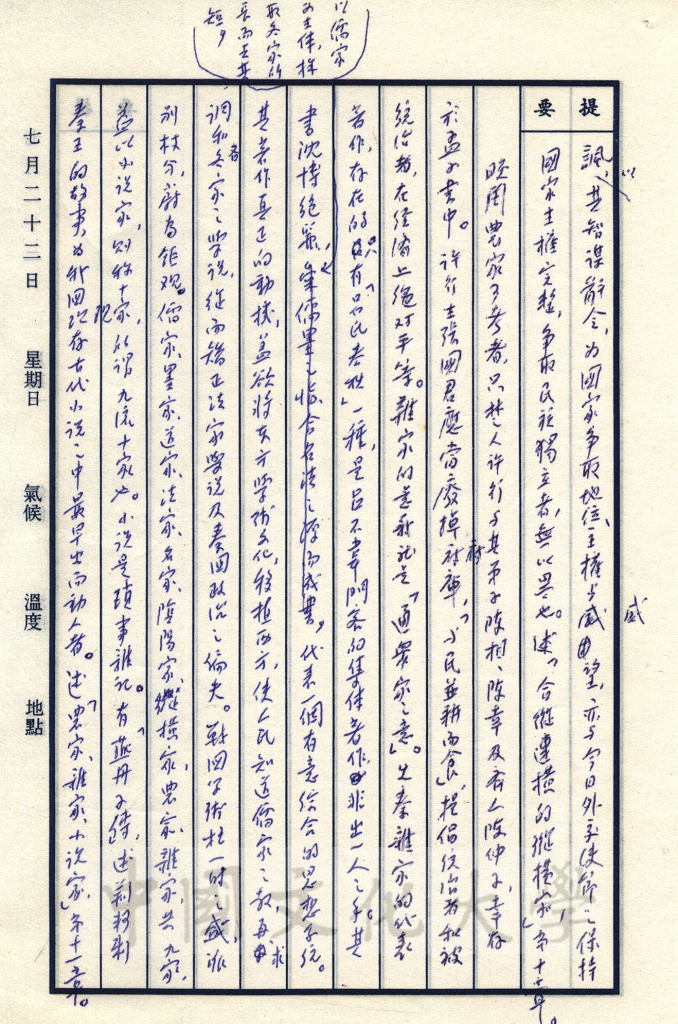 提要
諷，其智謀辭令，為國家爭取地位、主權與威望，亦與今日外交使節之保持
國家主權完整，爭取民族獨立者，無以異也。述「合縱連橫的縱橫家」第十章。
晚周農家可考者，只楚人許行與其弟子陳相、陳辛及齊人陳仲子，幸存
於孟子書中。許行主張國君應當廢掉，「與民並耕而食」，提倡統治者和被
統治者，在經濟上絕對平等。雜家的意義就是「通眾家之意」。先秦雜家的代表
著作，存在的只有「呂氏春秋」一種，是呂不韋門客的集體著作，非出一人之手。其
書沈博絕麗，集儒墨之恉，合名法之源而成書，代表一個有意綜合的思想系統。
以儒家
為主體，採
取各家所
長而去其
短，
其著作真正的動機，蓋欲將東方學術文化，移植西方，使人民知道儒家之教，再求
調和各家之學說，從而矯正法家學說及秦國政治之偏失。戰國學術極一時之盛，派
別枝分，蔚為鉅觀。儒家、墨家、道家、法家、名家、陰陽家、縱橫家、農家、雜家，共九家，
益以小說家，則稱十家，所謂九流十家也。小說是瑣事雜記。有「燕丹子傳，述荊軻刺
秦王的故事，為我國現存古代小說之中最早出而動人者。述「農家、雜家、小說家」第十一章。
七月二十三日 星期日 氣候 溫度 地點
中國文化大學